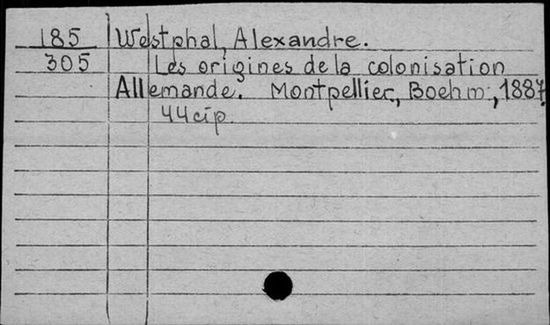 185 Westphal, Alexandre.
305 Les origines de la colonisation
Allemande. Montpellier, Boehm, 1887
44 p.